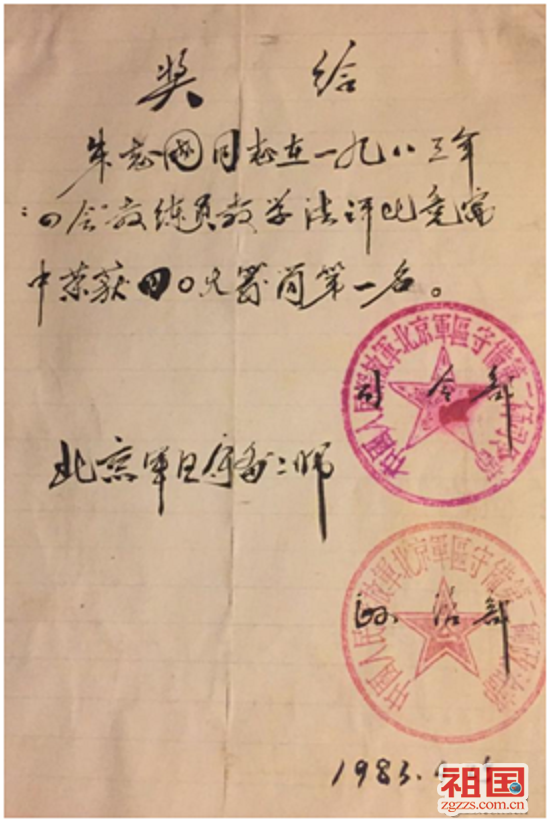 奖 给
朱志國同志在一九八三年
四会教练员教学法评比竞赛
中荣获四〇火箭筒第一名。
中國人民解放軍北京軍區守備第二師司令部
司令部
北京军区守备二师
中國人民解放軍北京軍區守備第二師政治部
政治部
1983.
祖国
zgzzs.com.cn